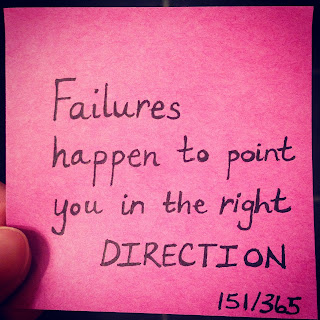 Failures
happen to point
you in the right
DIRECTION
151/365